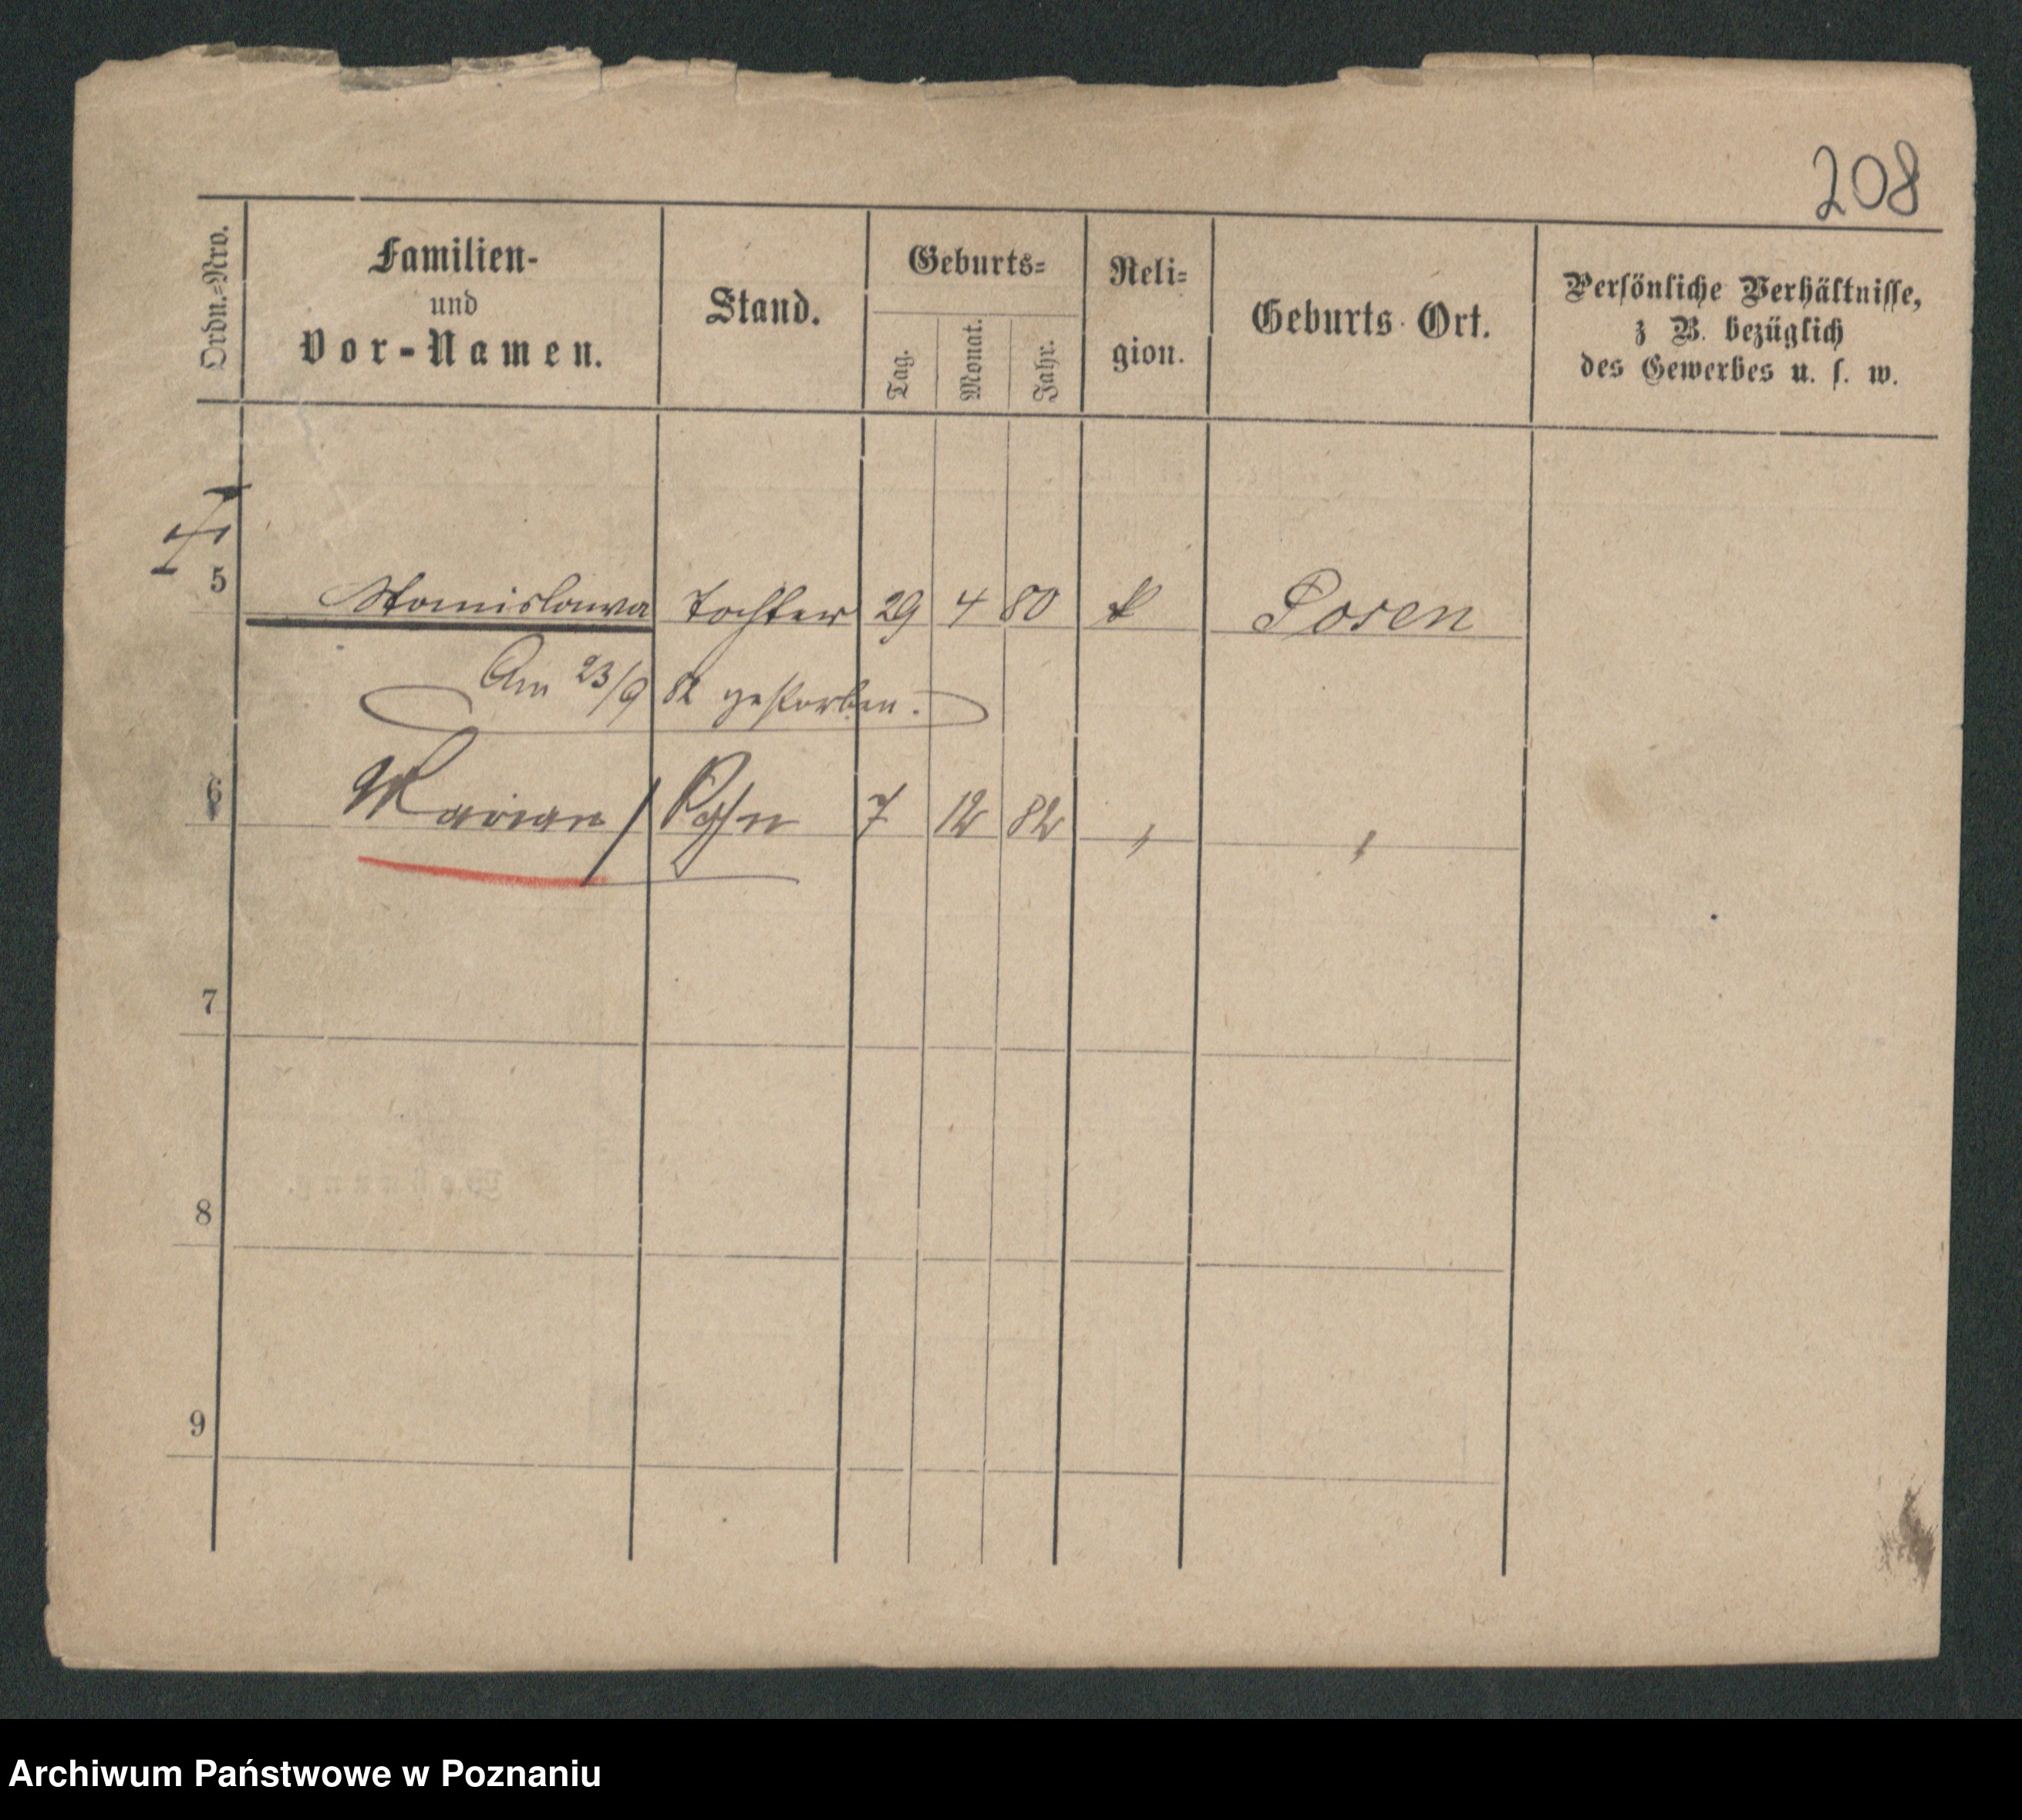 208
Ordn.-Nro.
Familien-
und
Vor-Namen.
Stand.
Geburts-
Tag.
Monat.
Jahr.
Reli-
gion.
Geburts Ort.
Persönliche Verhältnisse,
z B. bezüglich
des Gewerbes u. s. w.
5 Stanislawa Tochter 29 4 80 k Posen
Am 23/9 82 gestorben.
6 Marian / Sohn 7 12 82 " "
7
8
9
Archiwum Państwowe w Poznaniu